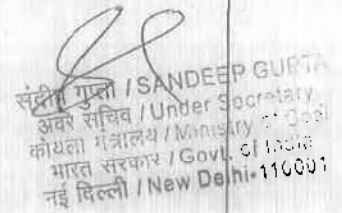 संदीप गुप्ता / SANDEEP GUPTA
अवर सचिव / Under Secretary
कोयला मंत्रालय / Ministry of Coal
भारत सरकार / Govt. of India
नई दिल्ली / New Delhi-110001